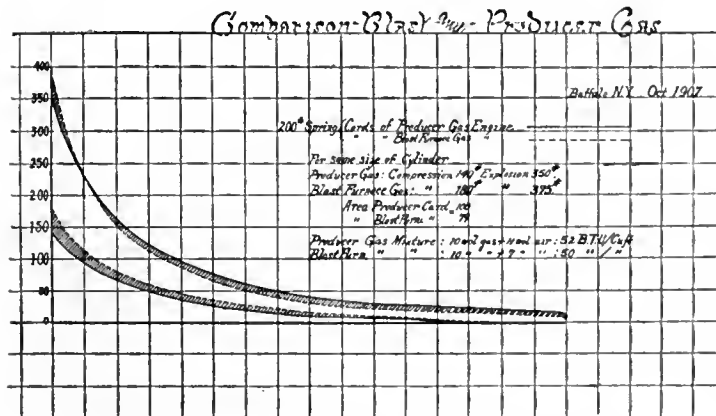 Comparison-Blast and Producer Gas
Buffalo N.Y. Oct 1907
200# Spring/Cards of Producer Gas Engine
" " Blast Furnace Gas "
For same size of Cylinder
Producer Gas: Compression 140# Explosion 350#
Blast Furnace Gas: " 180# " 375#
Area Producer Card = 100
" Blast Furn. " 79
Producer Gas Mixture: 10 vol gas + 11 vol air: 52 B.T.U/Cuft
Blast Furn. " " : 10 " " + 7 " " : 50 " / "
400
350
300
250
200
150
100
50
0